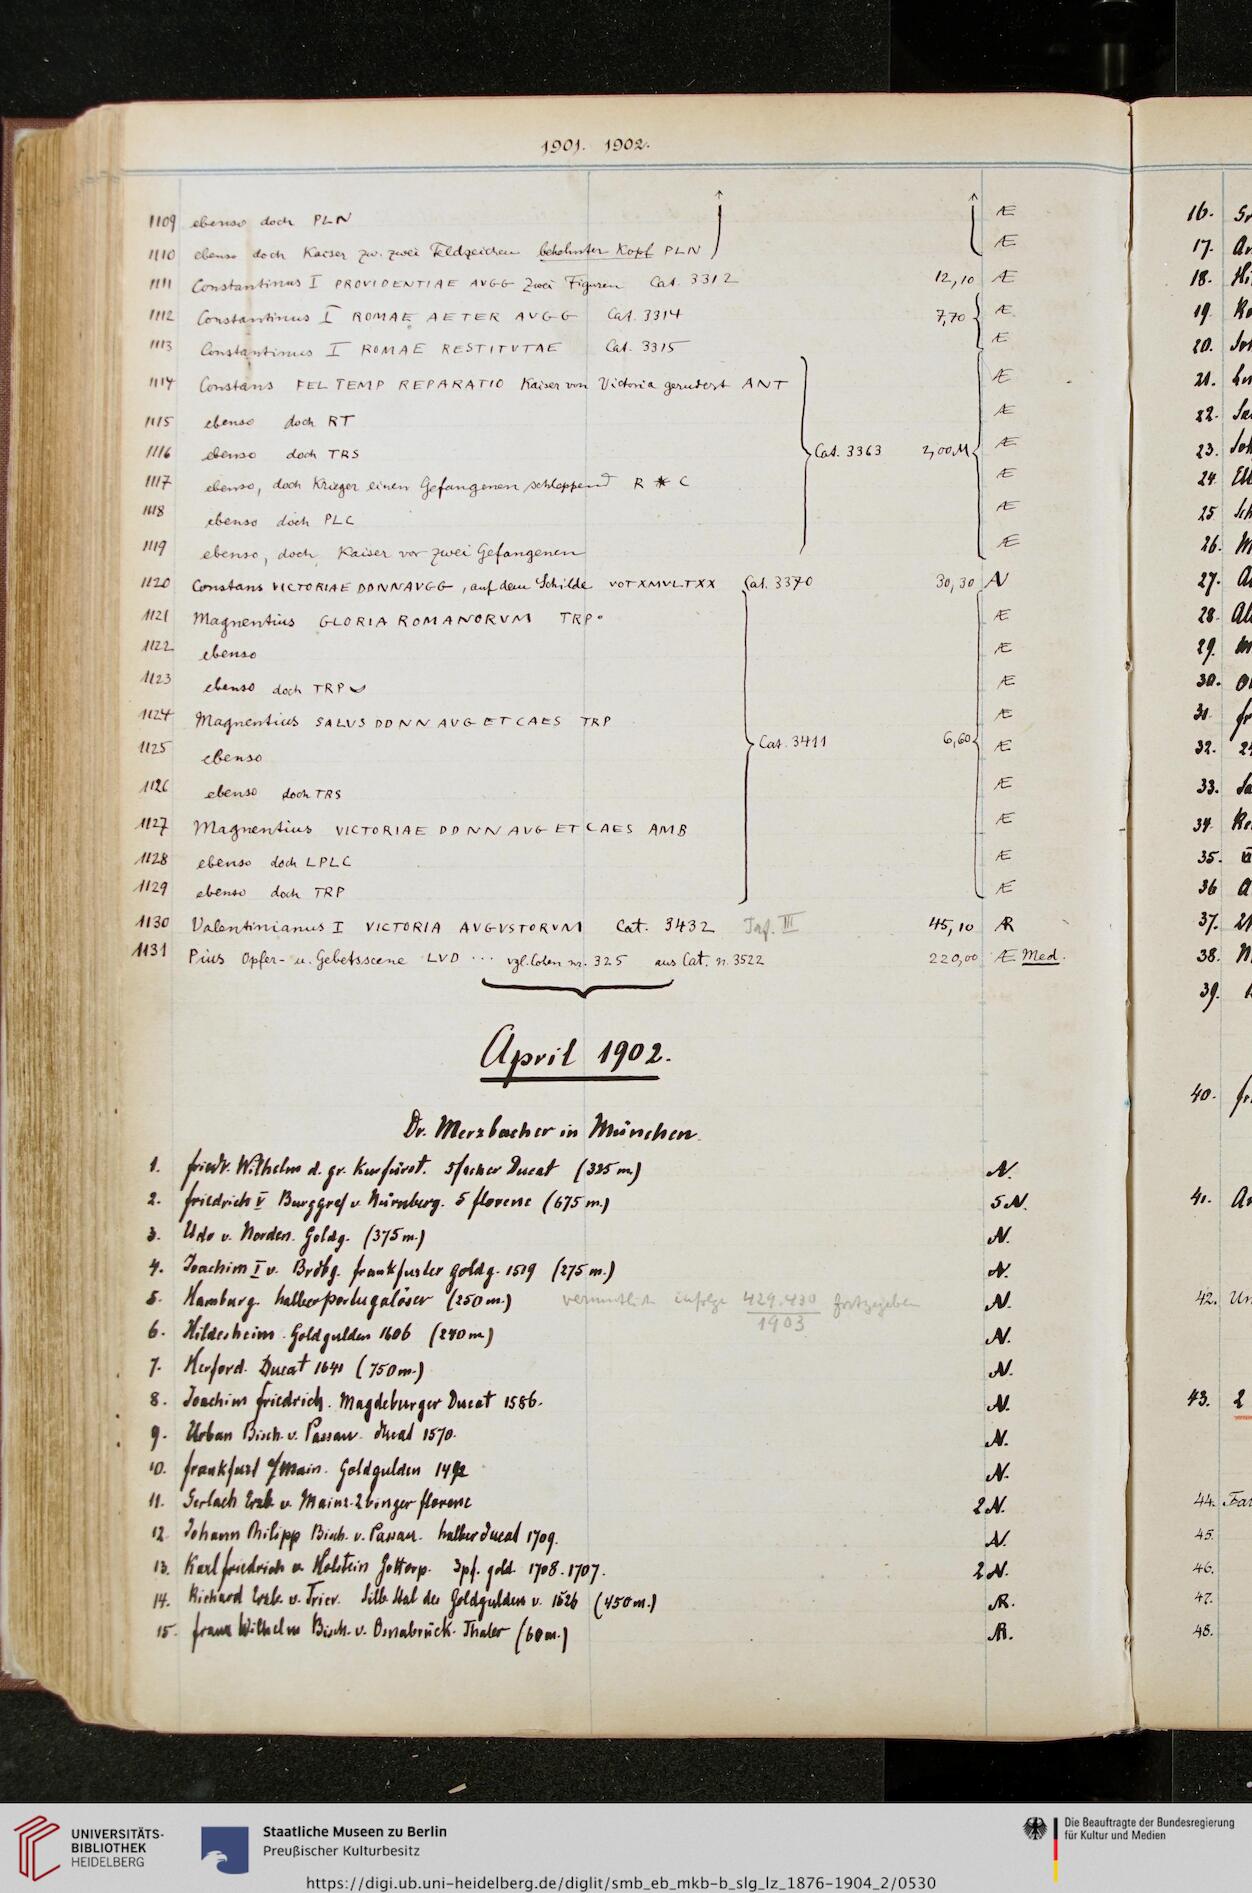 1901. 1902.
1109 ebenso doch PLN Æ
1110 ebenso doch Kaiser zw. zwei Feldzeichen behelmter Kopf PLN Æ
1111 Constantinus I PROVIDENTIAE AVGG Zwei Figuren Cat. 3312 12,10 Æ
1112 Constantinus I ROMAE AETER AVGG Cat. 3314 7,70 Æ
1113 Constantinus I ROMAE RESTITVTAE Cat. 3315 Æ
1114 Constans FEL TEMP REPARATIO Kaiser von Victoria gerudert ANT Æ
1115 ebenso doch RT Æ
1116 ebenso doch TRS Cat. 3363 2,00 M Æ
1117 ebenso, doch Krieger einen Gefangenen schleppend R * C Æ
1118 ebenso doch PLC Æ
1119 ebenso, doch Kaiser vor zwei Gefangenen Æ
1120 Constans VICTORIAE DDNNAVGG, auf dem Schilde VOTXMVLTXX Cat. 3370 30,30 AV
1121 Magnentius GLORIA ROMANORVM TRP• Æ
1122 ebenso Æ
1123 ebenso doch TRP Æ
1124 Magnentius SALVS DDNN AVG ET CAES TRP Æ
1125 ebenso Cat. 3411 6,60 Æ
1126 ebenso doch TRS Æ
1127 Magnentius VICTORIAE DDNN AVG ET CAES AMB Æ
1128 ebenso doch LPLC Æ
1129 ebenso doch TRP Æ
1130 Valentinianus I VICTORIA AVGVSTORVM Cat. 3432 Taf. III 45,10 AR
1131 Pius Opfer- u. Gebetsscene LVD ... vgl. Cohen nr. 325 aus Cat. n. 3522 220,00 Æ Med.
April 1902.
Dr. Merzbacher in München.
1. Friedr. Wilhelm d. gr. Kurfürst. 5facher Ducat (325 m.) AV.
2. Friedrich V Burggraf v. Nürnberg. 5 florene (675 m.) 5 AV.
3. Udo v. Norden. Goldg. (375 m.) AV.
4. Joachim I v. Brdbg. Frankfurter Goldg. 1519 (275 m.) AV.
5. Hamburg. halber Portugalöser (250 m.) vermutlich infolge 429.430 1903 fortgegeben AV.
6. Hildesheim. Goldgulden 1606 (240 m.) AV.
7. Herford. Ducat 1641 (750 m.) AV.
8. Joachim Friedrich. Magdeburger Ducat 1586. AV.
9. Urban Bisch. v. Passau. Ducat 1570. AV.
10. Frankfurt a/Main. Goldgulden 1492 AV.
11. Gerlach Erzb. v. Mainz. 2 Binger florene 2 AV.
12. Johann Philipp Bisch. v. Passau. halber Ducat 1709. AV.
13. Karl Friedrich v. Holstein Gottorp. gold. 1708. 1707. 2 AV.
14. Richard Erzb. v. Trier. Silb. des Goldgulden v. 1526 (450 m.) AR.
15. Franz Wilhelm Bisch. v. Osnabrück. Thaler (60 m.) AR.
16.
17.
18.
19.
20.
21.
22.
23.
24.
25
26.
27.
28.
29.
30.
31.
32.
33.
34.
35.
36
37.
38.
39.
40.
41.
42.
43. 2
44.
45.
46.
47.
48.
UNIVERSITÄTS-
BIBLIOTHEK
HEIDELBERG
Staatliche Museen zu Berlin
Preußischer Kulturbesitz
Die Beauftragte der Bundesregierung
für Kultur und Medien
https://digi.ub.uni-heidelberg.de/diglit/smb_eb_mkb-b_slg_lz_1876-1904_2/0530